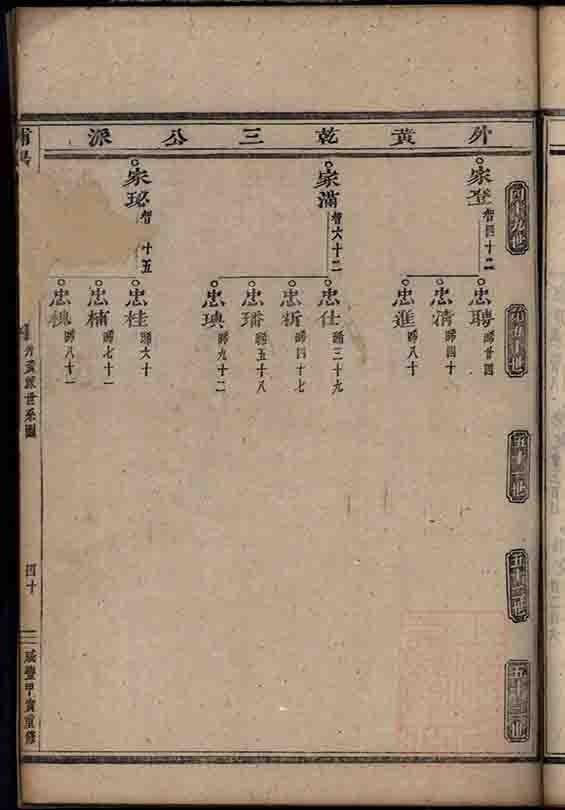 外黃乾三公派
四十九世
五十世
五十一世
五十二世
五十三世
家登 智四十二
忠聘 賜廿四
忠清 賜四十
忠進 賜八十
家滿 智六十二
忠仕 賜三十九
忠析 賜四十七
忠璠 賜五十八
忠璵 賜九十二
家珌 智十五
忠桂 賜六十
忠楠 賜七十一
忠槐 賜八十一
外黃派世系圖
四十
咸豐甲寅重修